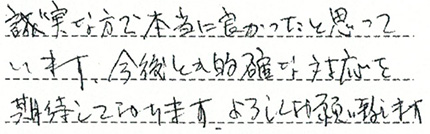 誠実な方で本当に良かったと思って
います。今後とも的確な対応を
期待しております。よろしくお願い致します